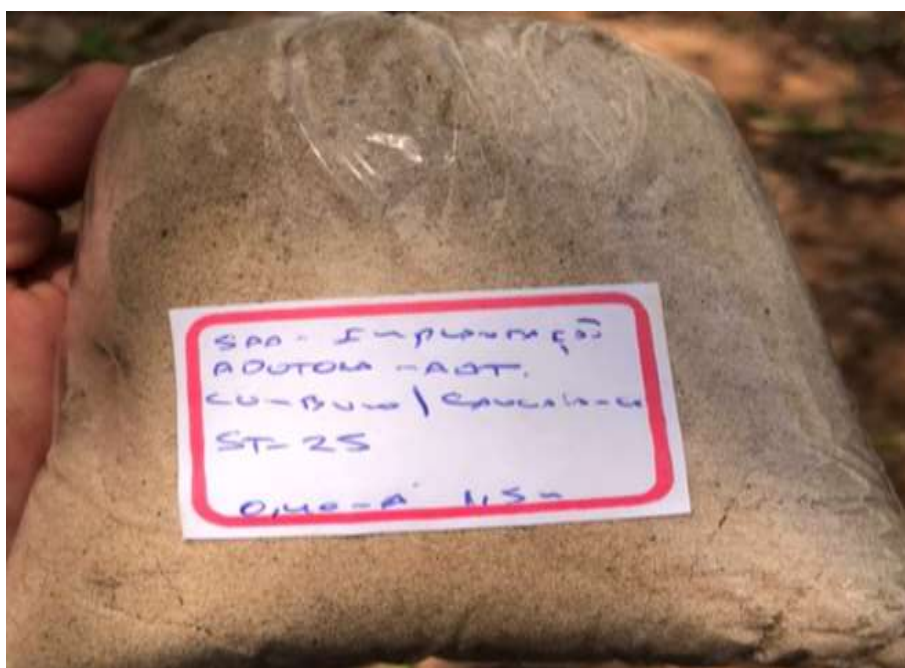 SAA - IMPLANTAÇÃO
ADUTORA - AAT.
CUMBUCO \ CAUCAIA-CE
ST-25
0,40m A 1,5m